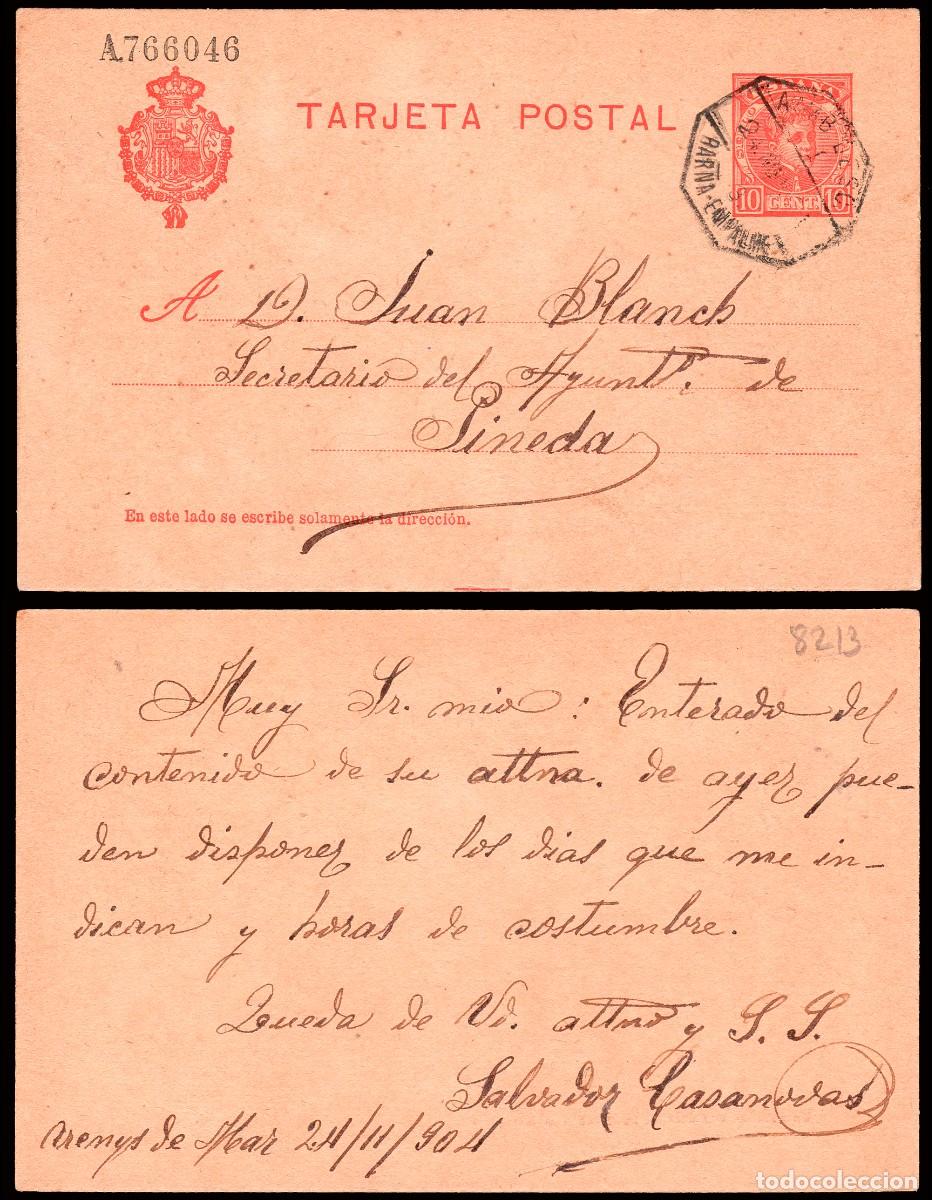 A.766046
TARJETA POSTAL
10 CENT. 10
BARNA-EMPALME
A D. Juan Blanch
Secretario del Ayuntº. de
Pineda
En este lado se escribe solamente la dirección.
8213
Muy Sr. mio: Enterado del
contenido de su attna. de ayer pue-
den disponer de los dias que me in-
dican y horas de costumbre.
Queda de Vd. attno y S. S.
Salvador Casanovas
Arenys de Mar 24/11/904
todocoleccion